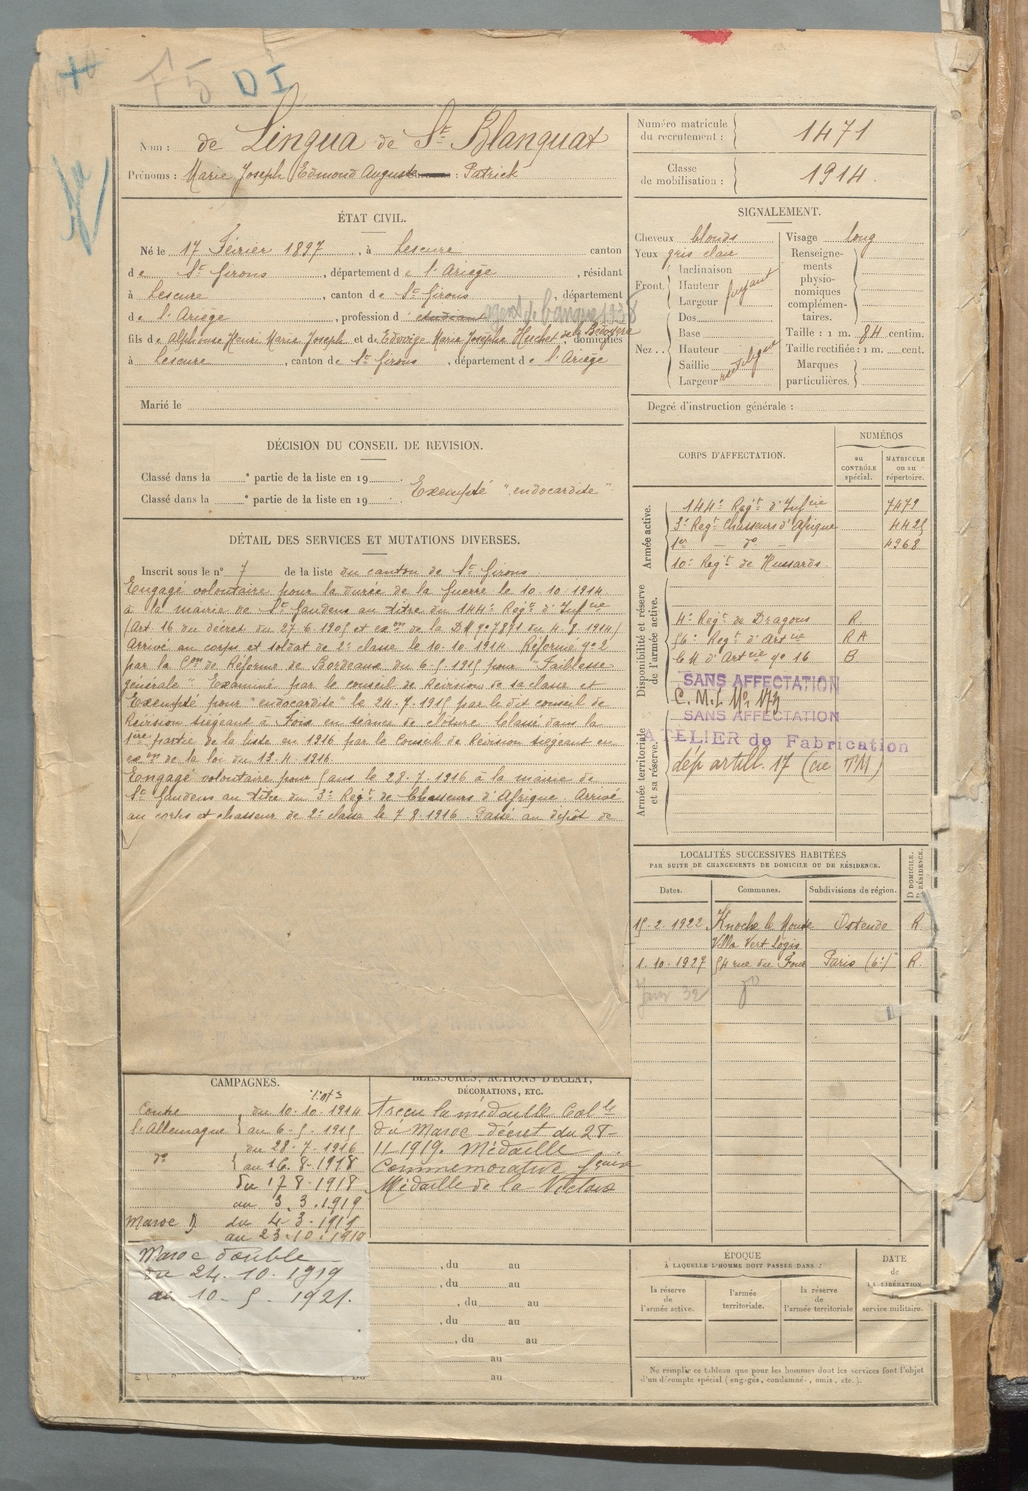 F5 DI
Nom : de Lingua de St Blanquat
Prénoms : Marie Joseph Edmond Auguste : Patrick
Numéro matricule du recrutement : 1471
Classe de mobilisation : 1914.
ÉTAT CIVIL.
Né le 17 Février 1897, à Lescure canton
de St Girons, département de l'Ariège, résidant
à Lescure, canton de St Girons, département
de l'Ariège, profession d étudiant agent de banque 1938
fils de Alphonse Henri Marie Joseph et de Edwige Marie Josèphe domiciliés
à Lescure, canton de St Girons, département de l'Ariège
Marié le
SIGNALEMENT.
Cheveux blonds
Yeux gris clair
Front. Inclinaison
Hauteur fuyant
Largeur
Nez.. Dos
Base
Hauteur rectiligne
Saillie
Largeur
Visage long
Renseignements physionomiques complémentaires.
Taille : 1 m. 84 centim.
Taille rectifiée : 1 m. cent.
Marques particulières.
Degré d'instruction générale :
DÉCISION DU CONSEIL DE REVISION.
Classé dans la e partie de la liste en 19
Classé dans la e partie de la liste en 19 Exempté "endocardite"
DÉTAIL DES SERVICES ET MUTATIONS DIVERSES.
Inscrit sous le n° 7 de la liste du canton de St Girons
Engagé volontaire pour la durée de la guerre le 10.10.1914
à la mairie de St Gaudens au titre du 144e Regt d'Infie
(Art 16 du décret du 27.6.1905 et exon de la DM n° 7891 du 4.8.1914)
Arrivé au corps et soldat de 2e classe le 10.10.1914 Réformé n° 2
par la Con de Réforme de Bordeaux du 6-5-1915 pour "Faiblesse
générale" Examiné par le conseil de Révision de sa classe et
Exempté pour "endocardite" le 24.7.1915 par le dit conseil de
Révision siégeant à Foix en séance de clôture Classé dans la
1ère partie de la liste en 1916 par le Conseil de Révision siégeant en
exon de la loi du 13.4.1916
Engagé volontaire pour 5 ans le 28.7.1916 à la mairie de
St Gaudens au titre du 3e Regt de Chasseurs d'Afrique Arrivé
au corps et chasseur de 2e classe le 7.8.1916. Passé au dépôt de
CORPS D'AFFECTATION.
NUMÉROS
au CONTRÔLE spécial.
MATRICULE ou au répertoire.
Armée active.
144e Regt d'Infie 7479
3e Regt Chasseurs d'Afrique 4425
1er — do — 4968
10e Regt de Hussards
Disponibilité et réserve de l'armée active.
4e Regt de Dragons R.
56e Regt d'Artie RA
C.M d'Artie n° 16 B
SANS AFFECTATION
C.M.I. No 173
Armée territoriale et sa réserve.
SANS AFFECTATION
ATELIER de Fabrication
dép artill. 17 (cie OM)
LOCALITÉS SUCCESSIVES HABITÉES
PAR SUITE DE CHANGEMENTS DE DOMICILE OU DE RÉSIDENCE.
Dates. Communes. Subdivisions de région. D DOMICILE. R RÉSIDENCE.
15-2-1922 Knocke le Ostende R
Villa Vert Logis
1.10.1927 54 rue du Four Paris (6e) R.
Janv 32 do
CAMPAGNES.
Contre du 10-10-1914
l'Allemagne au 6-5-1915
do du 28-7-1916
au 16.8-1918
du 17 8-1918
au 3.3.1919
Maroc du 4-3-1919
au 23.10.1919
Maroc double
du 24.10.1919
au 10-5-1921.
BLESSURES, ACTIONS D'ÉCLAT,
DÉCORATIONS, ETC.
A reçu la médaille Colle
du Maroc décret du 28-
11 1919. Médaille
Commemorative fçaise
Médaille de la Victoire
, du au
, du au
, du au
, du au
, du au
au
au
ÉPOQUE
À LAQUELLE L'HOMME DOIT PASSER DANS :
la réserve de l'armée active.
l'armée territoriale.
la réserve de l'armée territoriale
DATE de LA LIBÉRATION service militaire.
Ne remplir ce tableau que pour les hommes dont les services font l'objet
d'un décompte spécial (engagés, condamnés, omis, etc.).